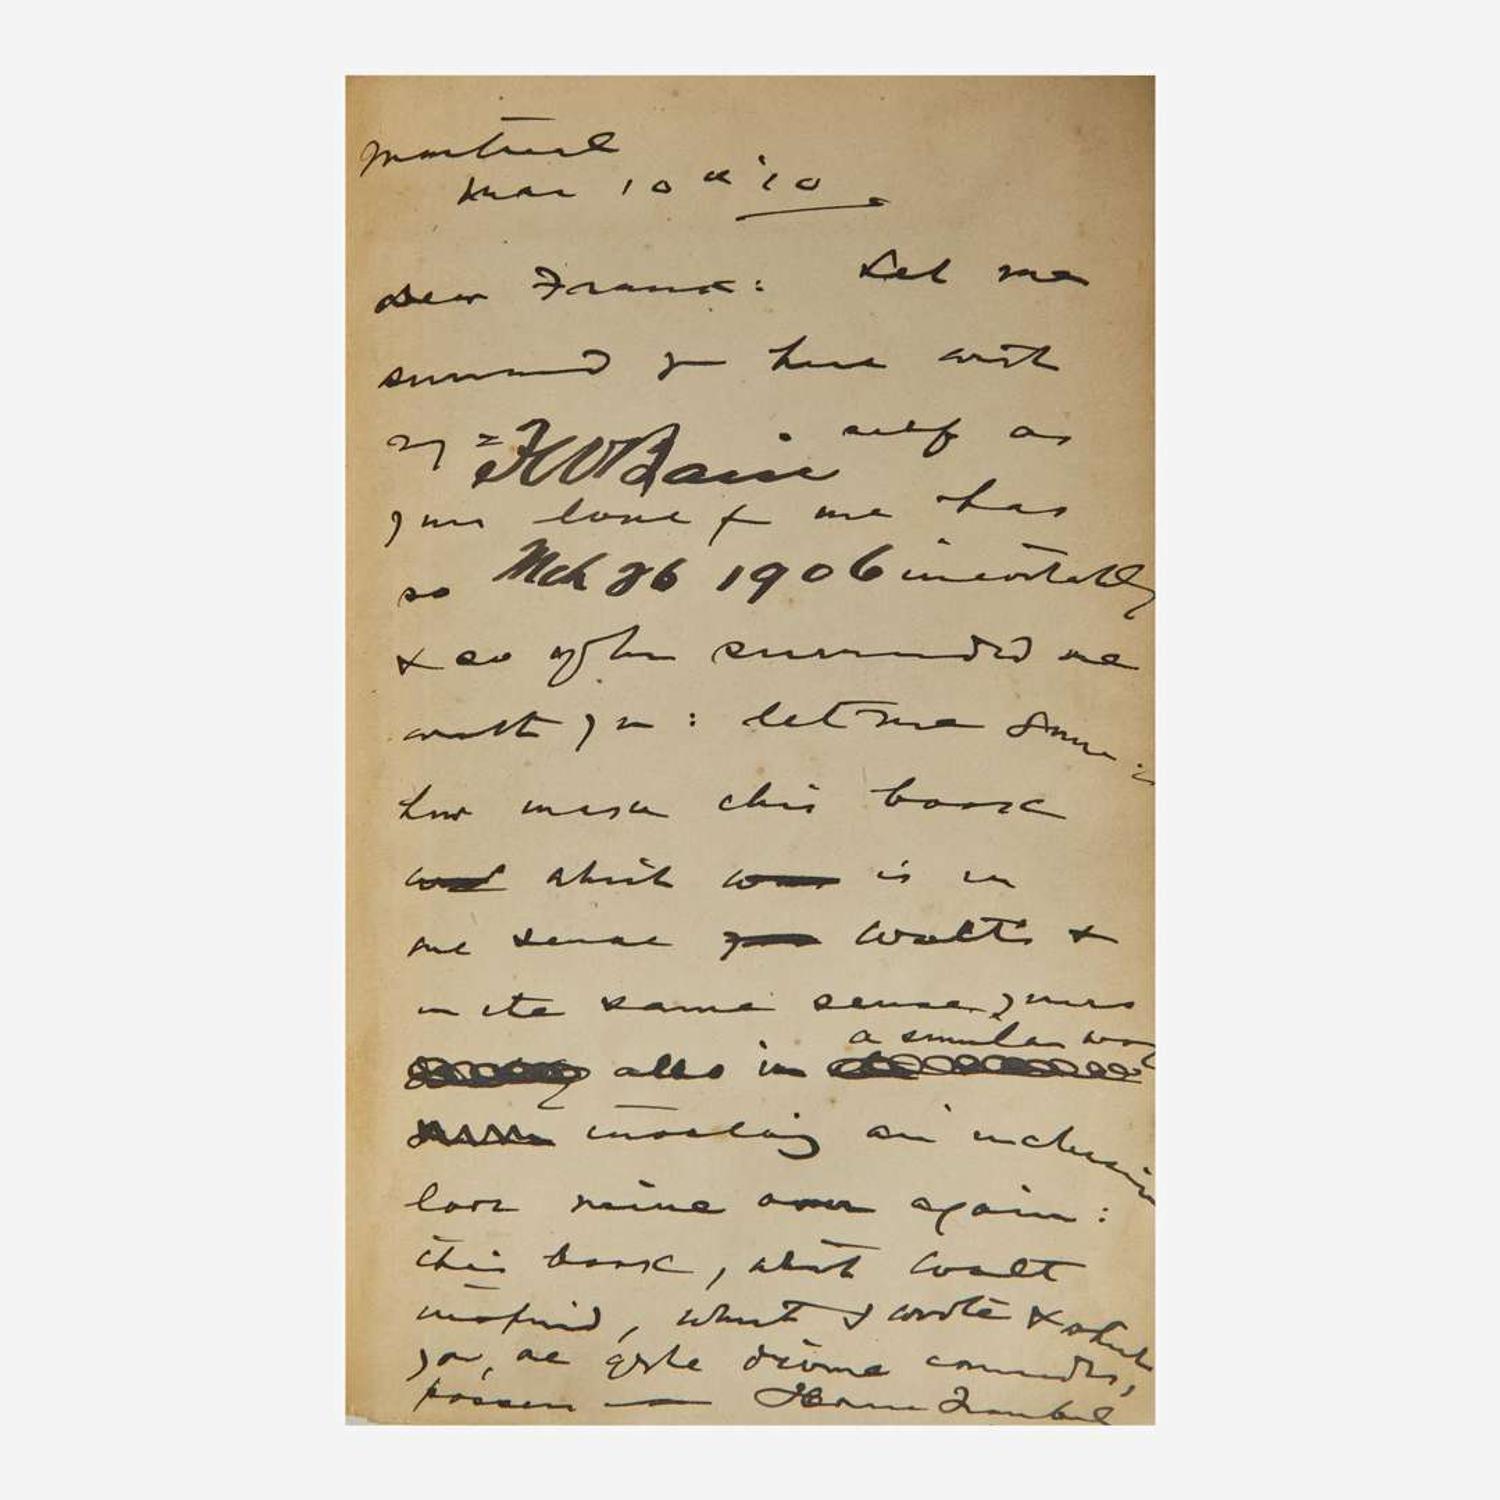 Montreal
Mar 10th '10
Dear Frank: Let me
surround you here with
my = self as
F W Bain
your love for me has
so inevitably
Mch 26 1906
& so often surrounded me
with you: let me some-
how make this book
which is in
one sense Walt's &
in the same sense yours
a similar way
also in
involving an inclusive
love mine again:
this book, which Walt
inspired, which I wrote & which
you, of the divine comrades,
possess — Horace Traubel